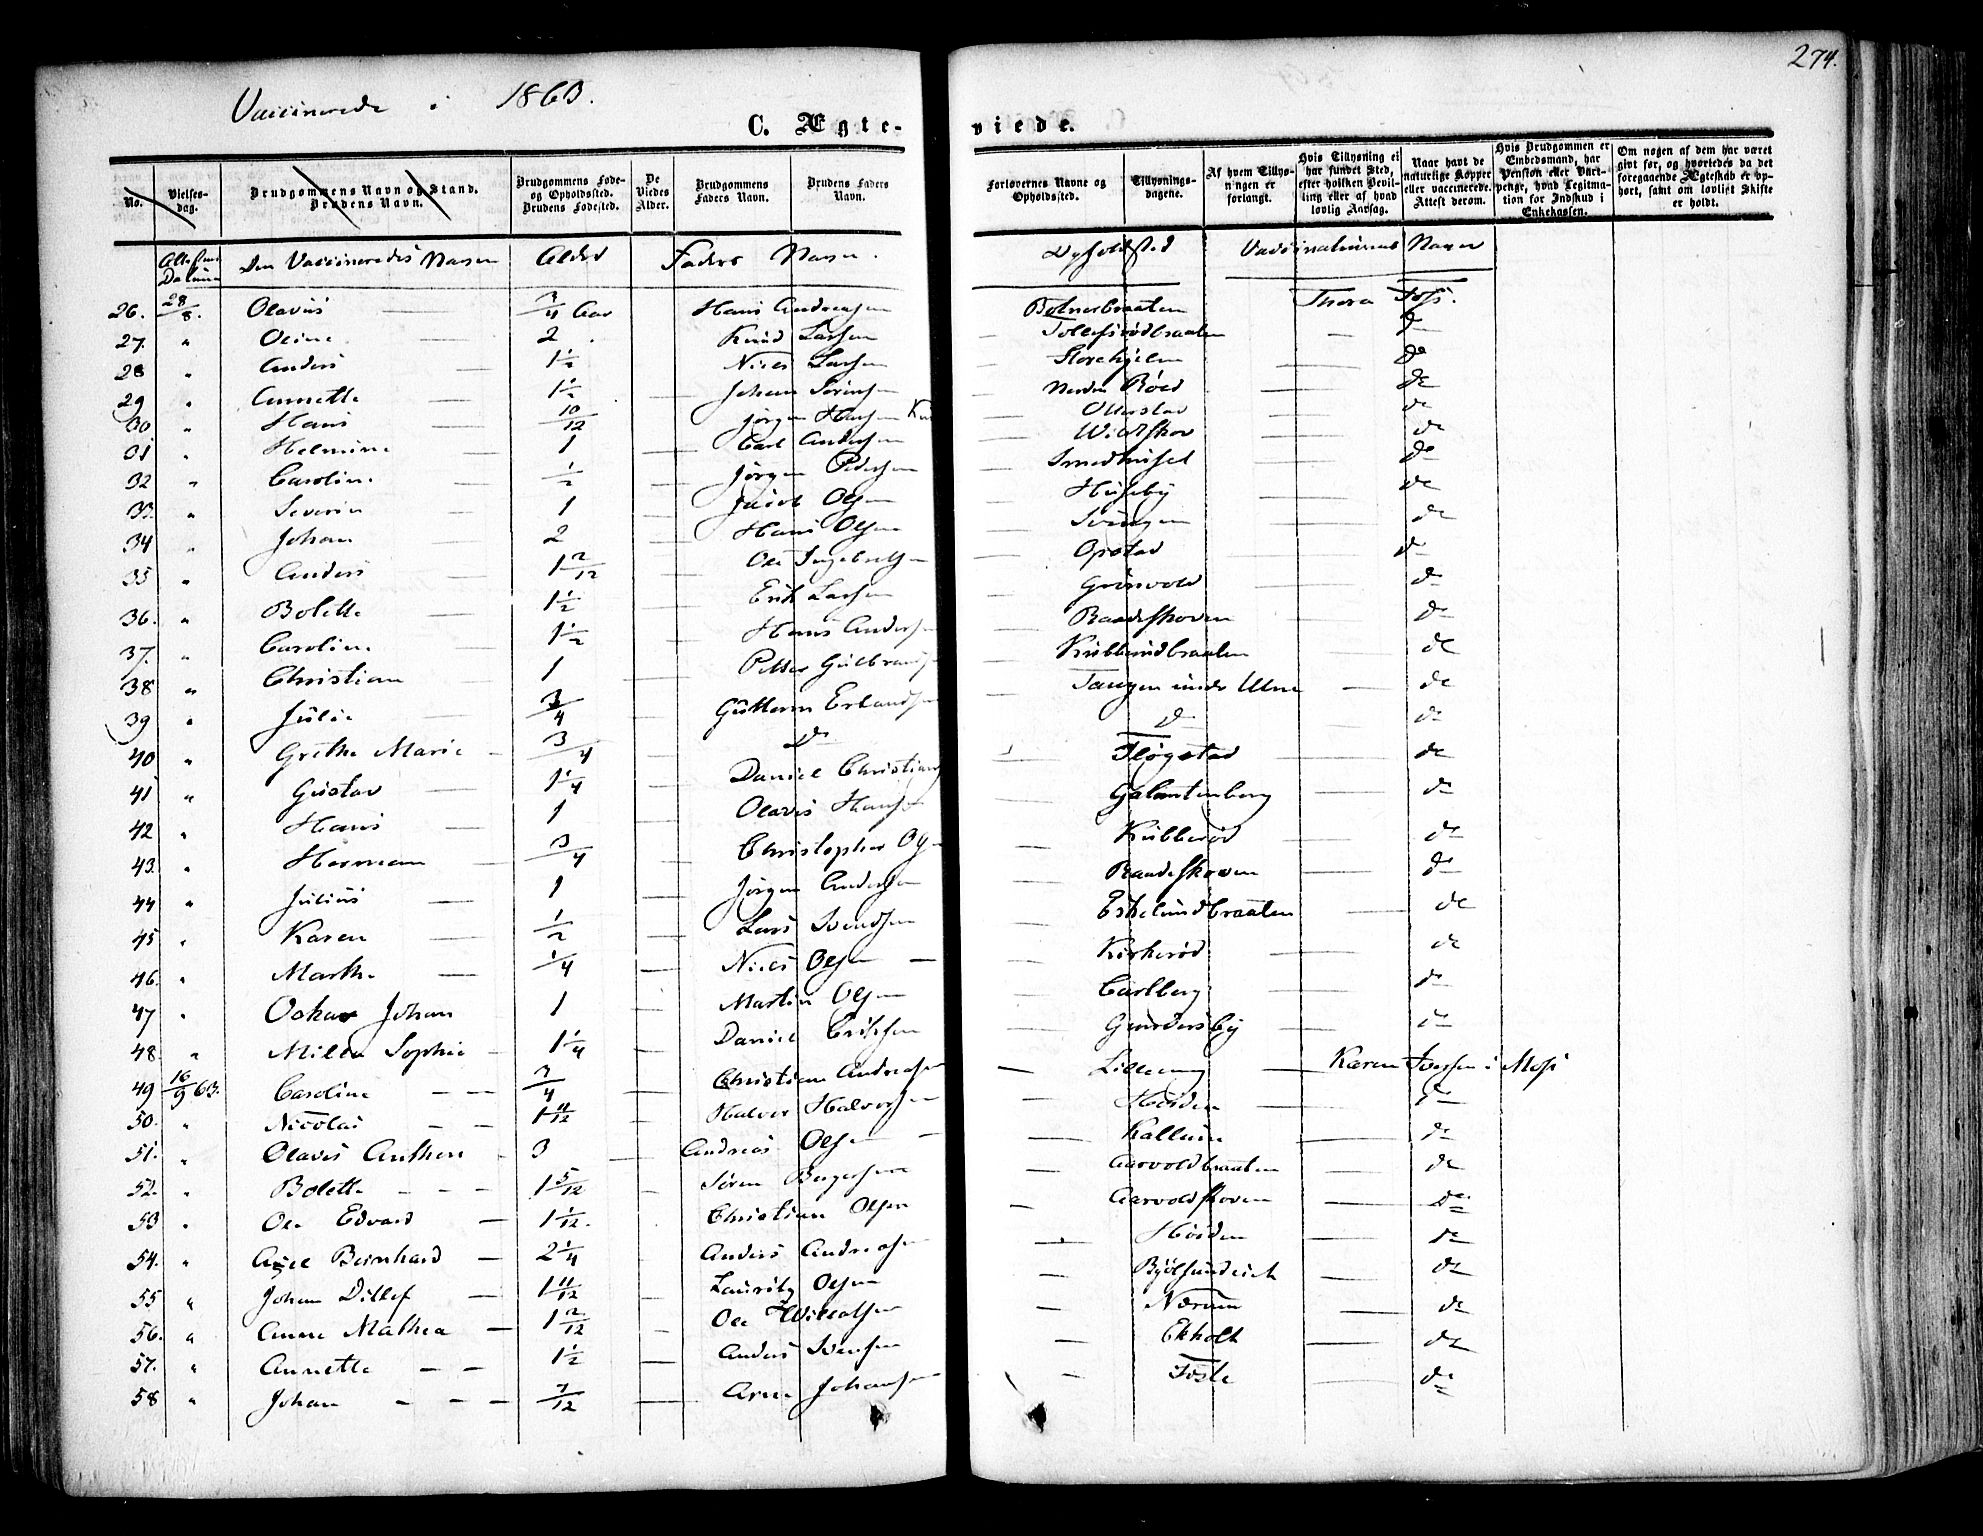 274.
Vaccinerede i 1863.
C. Ægte- viede.
No. | Vielses-dag. | Brudgommens Navn og Stand. Brudens Navn. | Brudgommens Føde- og Opholdssted. Brudens Fødested. | De Viedes Alder. | Brudgommens Faders Navn. | Brudens Faders Navn. | Forlovernes Navne og Opholdssted. | Tillysnings-dagene. | Af hvem Tillysningen er forlangt. | Hvis Tillysning ei har fundet Sted, efter hvilken Bevilling eller af hvad lovlig Aarsag. | Naar havt de naturlige Kopper eller vaccinerede. Attest derom. | Hvis Brudgommen er Embedsmand, har Pension eller Vartpenge, hvad Legitimation for Indskud i Enkekassen. | Om nogen af dem har været givt før, og hvorledes da det foregaaende Ægteskab er ophørt, samt om lovligt Skifte er holdt.
Den Vaccineredes Navn | Alder | Faders Navn. | Opholdssted | Vaccinateurens Navn
26. 28/8. Olavus — 3/4 Aar Hans Andreasen Botnerbraaten Thora Foss.
27. " Oline — 2 Knud Larsen Tollefsrødbraaten — do
28 " Anders — 1 1/2 Niels Larsen do
29 " Annette — 1 1/2 Johan Sørensen Nedre Røed do
30 " Hans — 10/12 Jørgen Hansen Otterstad do
31 " Helmine — 1 Carl Andersen Wiolskov do
32 " Caroline — 1/2 Jørgen Pedersen Smedhuset do
33. " Severin — 1 Jacob Olsen Huseby do
34 " Johan — 2 Hans Olsen do
35 " Anders — 1 2/12 Ole Ingebretsen Opstad do
36. " Bolette — 1 1/2 Erik Larsen Grønvold do
37. " Caroline — 1 1/2 Hans Andersen Raadeskoven do
38 " Christian — 1 Petter Gulbrands Kubberødbraaten do
39 " Julie — 3/4 Guttorm Erlandsen Tangen under do
40 " Grethe Marie — 3/4 do do do
41 " Gustav — 1 1/4 Daniel Christians Fløgstad do
42 " Hans — 1 Olaves Hansen Galantenberg do
43. " Herman — 3/4 Christopher Olsen Kubberød do
44 " Julius — 1 Jørgen Andersen Raadeskoven do
45 " Karen — 1/2 Lars Svendsen Eskelundbraaten do
46. " Marthe — 1/4 Niels Olsen Kirkerød do
47 " Oskar Johan 1 Martin Olsen Carlberg do
48. " Milla Sophie — 1 1/4 Daniel Erichsen Gundersby do
49 16/9 63. Caroline — 3/4 Christian Andreasen Lilleeng — Karen Iversen i Moss
50. " Nicolai — 1 11/12 Halvor Halvorsen Høiden do
51. " Olaves Anthon — 3 Andreas Olsen Kallum do
52. " Bolette — 1 5/12 Søren Bergersen Aarvoldbraaten do
53 " Ole Edvard — 1 1/12. Christian Olsen Aarvoldskoven do
54. " Axel Bernhard — 2 1/4 Anders Andreasen Høiden do
55 " Johan Ditlef — 1 11/12 Lauritz Olsen do
56. " Anne Mathea — 1 2/12 Ole Nærum do
57. " Annette — 1 1/2 Anders Svensen Ekholt do
58 " Johan — 7/12 Arne Johansen Fosle do